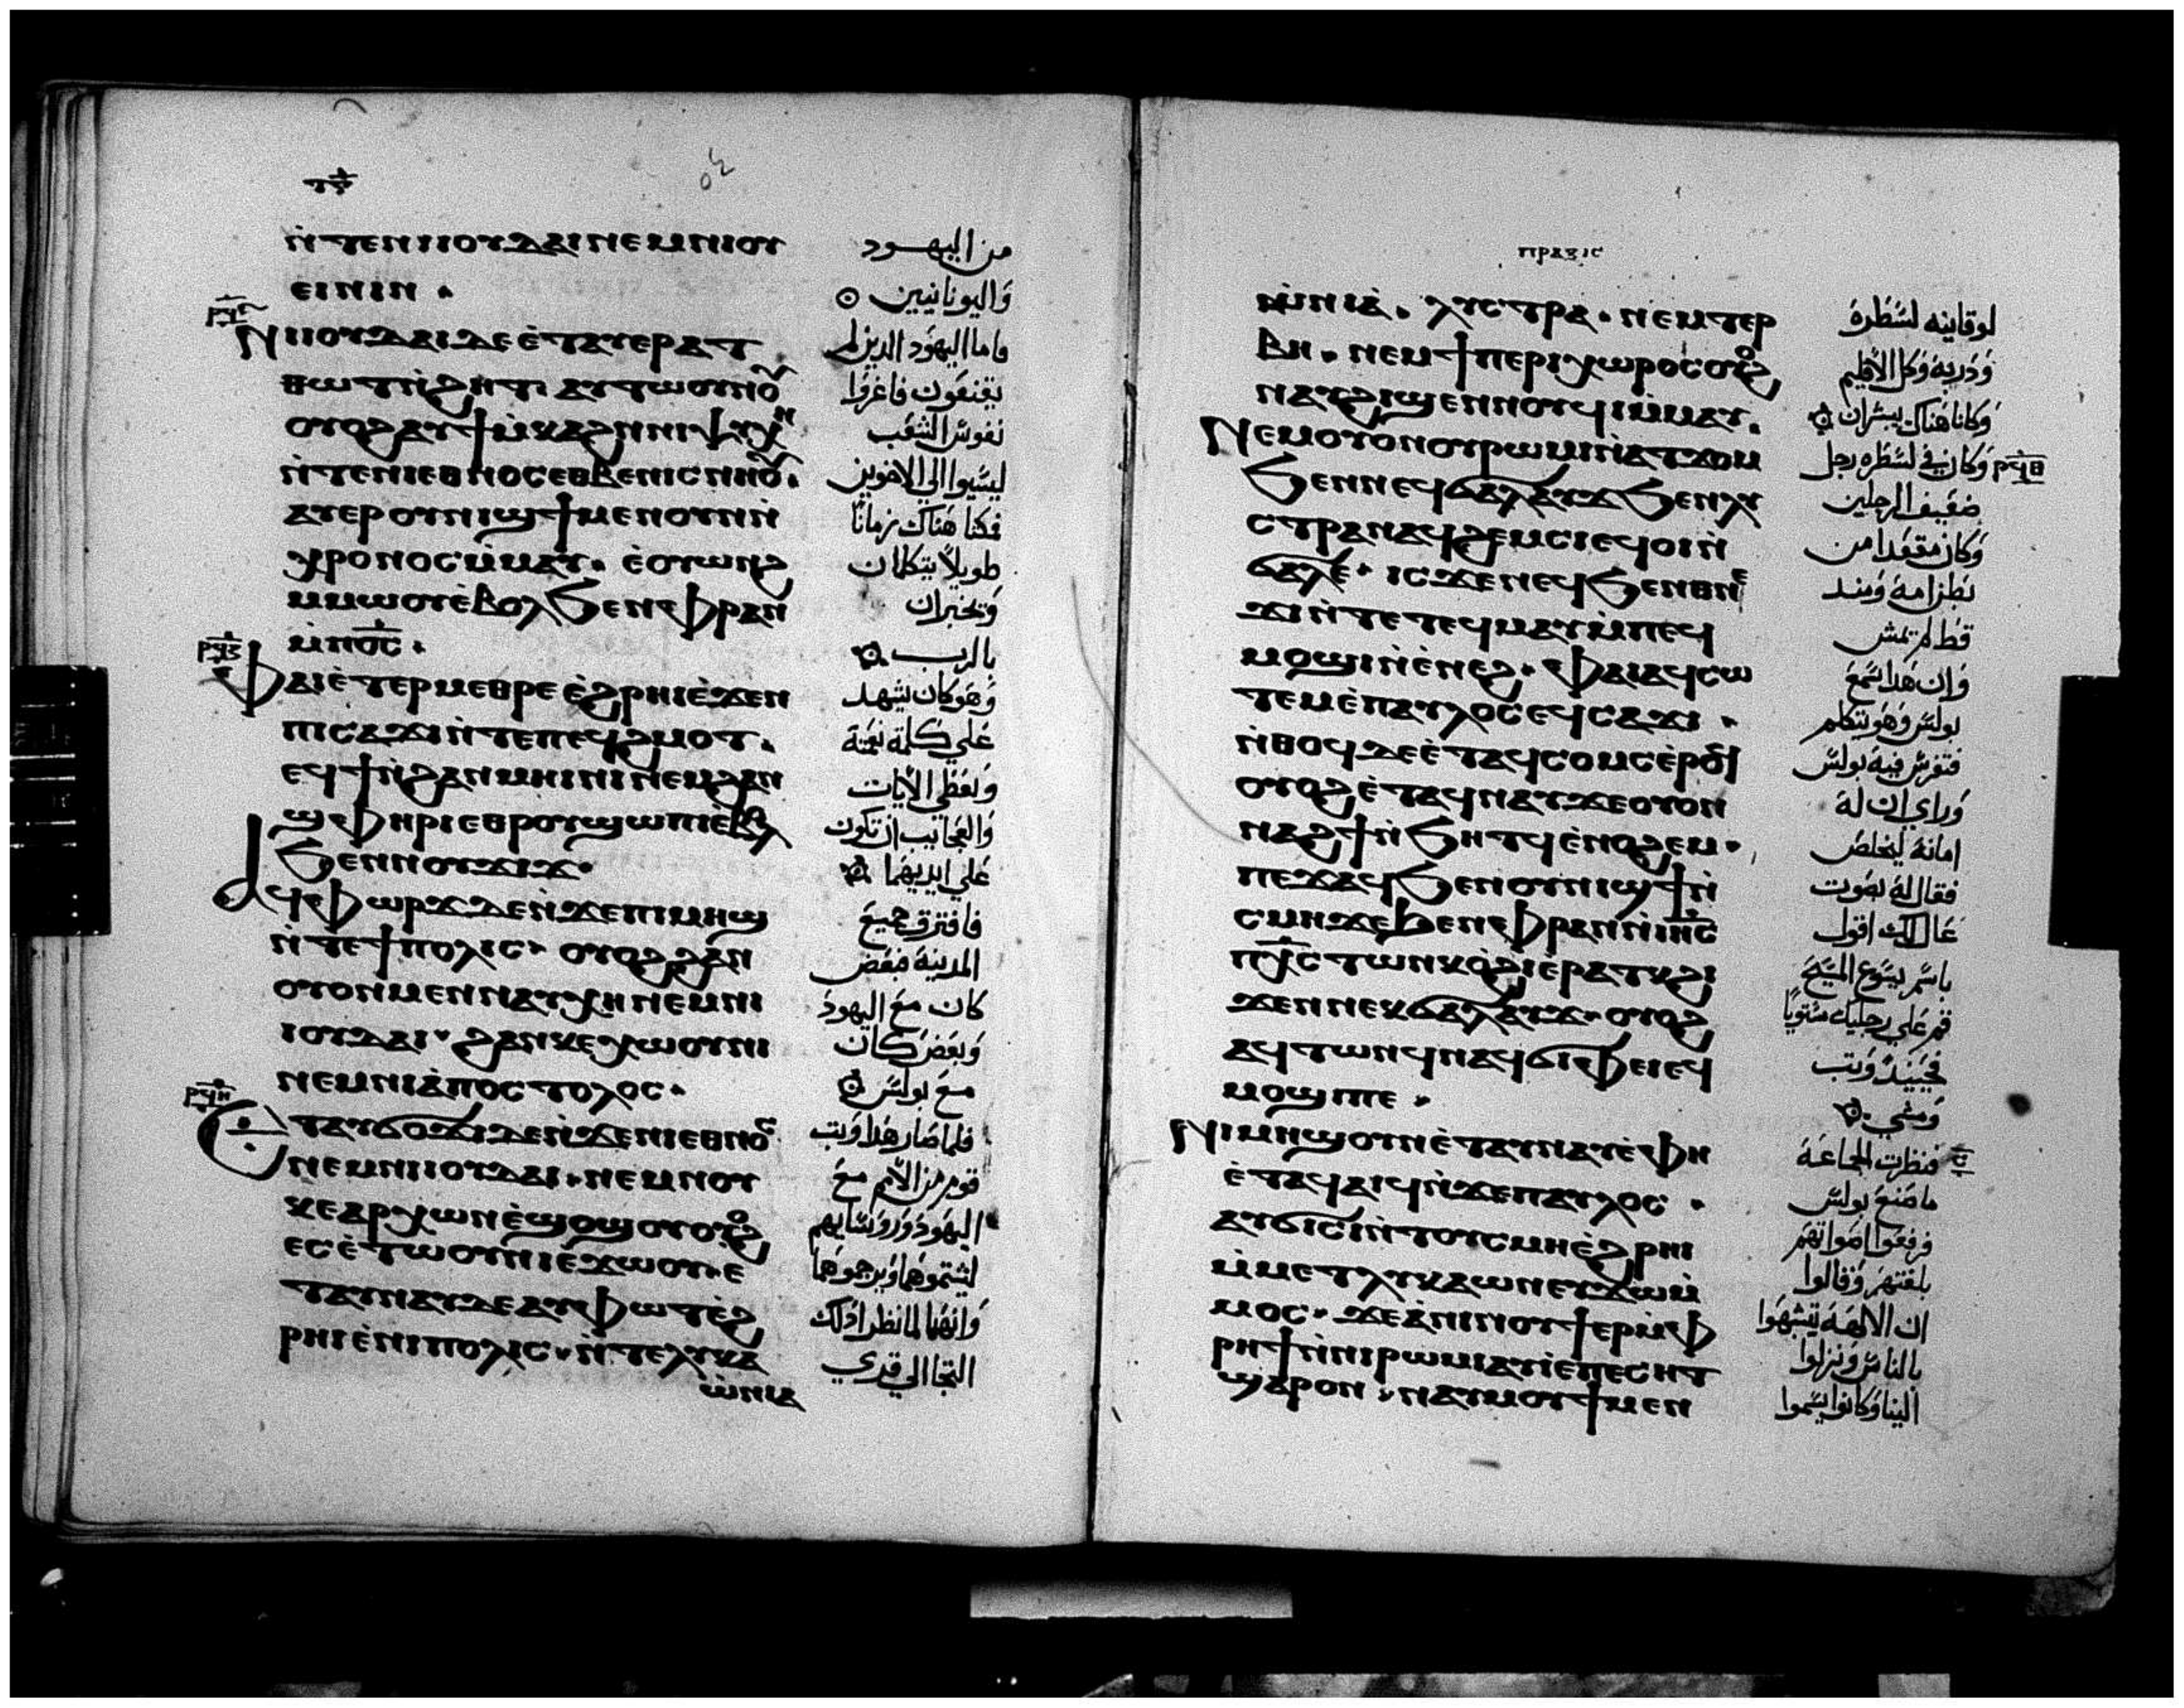 ⲛ̀ⲧⲉⲛⲓⲓⲟⲩⲇⲁⲓⲛⲉⲙⲛⲓⲟⲩ
ⲉⲓⲛⲓⲛ ·
ⲛⲓⲓⲟⲩⲇⲁⲓⲇⲉⲉ̀ⲧⲁⲩⲉⲣⲁⲧ
ⲑⲱⲧⲛ̀ϩⲏⲧ· ⲁⲩⲧⲱⲟⲩⲛⲟⲩ
ⲟⲩⲟϩⲁⲩϯⲙ̀ⲕⲁϩⲛ̀ⲛⲓⲯⲩⲭⲏ
ⲛ̀ⲧⲉⲛⲓⲉⲑⲛⲟⲥⲉⲑⲃⲉⲛⲓⲥⲛⲏⲟⲩ·
ⲁⲩⲉⲣⲟⲩⲛⲓϣϯⲙⲉⲛⲟⲩⲛⲛ̀
ⲭⲣⲟⲛⲟⲥⲙ̀ⲙⲁⲩ· ⲉ̀ⲟⲩⲱⲛϩ
ⲙ̀ⲙⲱⲟⲩⲉ̀ⲃⲟⲗϧⲉⲛⲫⲣⲁⲛ
ⲙ̀ⲡⲟ̅ⲥ̅ ·
ⲫⲁⲓⲉ̀ⲧⲉⲣⲙⲉⲑⲣⲉⲉ̀ϩⲣⲏⲓⲉ̀ϫⲉⲛ
ⲡⲓⲥⲁϫⲓⲛ̀ⲧⲉⲡⲉϥϩⲙⲟⲧ·
ⲉϥϯⲛ̀ϩⲁⲛⲙⲏⲓⲛⲓⲛⲉⲙϩⲁⲛ
ϣⲫⲏⲣⲓⲉⲑⲣⲟⲩϣⲱⲡⲓⲉ̀ⲃⲟⲗ
ϧⲉⲛⲛⲟⲩϫⲓϫ·
ⲁϥⲫⲱⲣϫⲇⲉⲛ̀ϫⲉⲡⲓⲙⲏϣ
ⲛ̀ⲧⲉϯⲡⲟⲗⲓⲥ· ⲟⲩⲟϩϩⲁⲛ
ⲟⲩⲟⲛⲙⲉⲛⲛⲁⲩⲭⲏⲛⲉⲙⲛⲓ
ⲓⲟⲩⲇⲁⲓ· ϩⲁⲛⲕⲉⲭⲱⲟⲩⲛⲓ
ⲛⲉⲙⲛⲓⲁ̀ⲡⲟⲥⲧⲟⲗⲟⲥ·
ⲉⲧⲁⲩϭⲟϫⲓⲇⲉⲛ̀ϫⲉⲛⲓⲉⲑⲛⲟⲥ
ⲛⲉⲙⲛⲓⲓⲟⲩⲇⲁⲓ·ⲛⲉⲙⲛⲟⲩ
ⲕⲉⲁⲣⲭⲱⲛⲉ̀ϣⲟϣⲟⲩⲟⲩⲟϩ
ⲉⲥⲉ̀ⲧⲱⲟⲩⲛⲓⲉ̀ϫⲱⲟⲩ·ⲉ
ⲧⲁⲩⲛⲁⲩⲇⲉⲁⲩⲫⲱⲧⲉ̀ϩ
ⲣⲏⲓⲉ̀ⲛⲓⲡⲟⲗⲓⲥ·ⲛ̀ⲧⲉⲗⲩⲕⲁ
ⲱ̀ⲛⲓⲁ
من اليهود
واليونانيين
فاما اليهود الذين لم
يقنعون فاغروا
نفوس الشعب
ليسيوا الي الاخوين
فمكثا هناك زمانا
طويلا يتكلمان
ويخبران
بالرب
وهو كان يشهد
علي كلمة نعمته
ويعطي الايات
والعجايب ان تكون
علي ايديهما
فافترق جميع
المدينة فبعض
كان مع اليهود
وبعض كان
مع بولس
فلما صار هذا وثب
قوم من الامم مع
اليهود وروسايهم
ليشتموهما ويرجموهما
وانهما لما نظرا ذلك
التجا الي قري
ⲡⲣⲁⲝⲓⲥ
ⲱ̀ⲛⲓⲁ̀· ⲗⲩⲥⲧⲣⲁ·ⲛⲉⲙⲧⲉⲣ
ⲃⲏ·ⲛⲉⲙϯⲡⲉⲣⲓⲭⲱⲣⲟⲥⲟⲩⲟϩ
ⲛⲁⲩϩⲓϣⲉⲛⲛⲟⲩϥⲓⲙ̀ⲙⲁⲩ·
ⲛⲉⲙⲟⲩⲟⲛⲟⲩⲣⲱⲙⲓⲛ̀ⲁⲧϫⲟⲙ
ϧⲉⲛⲛⲉϥϭⲁⲗⲁⲩϫϧⲉⲛⲗⲩ
ⲥⲧⲣⲁⲛⲁϥϩⲉⲙⲥⲓⲉϥⲟⲓⲛ̀
ϭⲁⲗⲉ· ⲓⲥϫⲉⲛⲉϥϧⲉⲛⲑⲛⲉ
ϫⲓⲛ̀ⲧⲉⲧⲉϥⲙⲁⲩⲙ̀ⲡⲉϥ
ⲙⲟϣⲓⲛ̀ⲉ̀ⲛⲉϩ·ⲫⲁⲓⲁϥⲥⲱ
ⲧⲉⲙⲉ̀ⲡⲁⲩⲗⲟⲥⲉϥⲥⲁϫⲓ·
ⲛ̀ⲑⲟϥⲇⲉⲉ̀ⲧⲁϥⲥⲟⲙⲥⲉ̀ⲣⲟϥ
ⲟⲩⲟϩⲉ̀ⲧⲁϥⲛⲁⲩϫⲉⲟⲩⲟⲛ
ⲛⲁϩϯⲛ̀ϧⲏⲧϥⲉ̀ⲛⲟϩⲉⲙ·
ⲡⲉϫⲁϥϧⲉⲛⲟⲩⲛⲓϣϯⲛ̀
ⲥⲙⲏϫⲉϧⲉⲛⲫⲣⲁⲛⲛ̀ⲓⲏ̅ⲥ̅
ⲡⲭ̅ⲥ̅ⲧⲱⲛⲕⲟ̀ϩⲓⲉ̀ⲣⲁⲧⲕϩⲓ
ϫⲉⲛⲛⲉⲕϭⲁⲗⲁⲩϫ·ⲟⲩⲟϩ
ⲁϥⲧⲱⲛϥⲛⲁϥϭⲓⲫⲉⲓⲉϥ
ⲙⲟϣⲓⲡⲉ·
ⲛⲓⲙⲏϣⲟⲩⲛⲉ̀ⲧⲁⲩⲛⲁⲩⲉ̀ⲫⲏ
ⲉ̀ⲧⲁϥⲁⲓϥⲛ̀ϫⲉⲡⲁⲩⲗⲟⲥ·
ⲁⲩϭⲓⲥⲓⲛ̀ⲧⲟⲩⲥⲙⲏⲉ̀ϩⲣⲏⲓ
ⲙ̀ⲙⲉⲧⲗⲩⲕⲁⲱⲛⲉⲩϫⲱⲙ̀
ⲙⲟⲥ·ϫⲉⲁ̀ⲛⲓⲛⲟⲩϯⲉⲣⲙ̀ⲫ
ⲣⲏϯⲛ̀ⲛⲓⲣⲱⲙⲓⲁⲩⲓ̀ⲉ̀ⲡⲉⲥⲏⲧ
ϣⲁⲣⲟⲛ·ⲛⲁⲩⲙⲟⲩϯⲙⲉⲛ
لوقانيه لسطرة
ودربه وكل الاقليم
وكانا هناك يبشران
وكان في لسطره رجل
ضعيف الرجلين
وكان مقعدا من
بطن امه ومنذ
قط لم يمش
وان هذا سمع
بولس وهو يتكلم
فتفرس فيه بولس
وراي ان له
امانة ليخلص
فقال له بصوت
عال لك اقول
باسم يسوع المسيح
قم علي رجليك مستويا
فحينيذ وثب
ومشي
فنظرت الجماعة
ما صنع بولس
فرفعوا اصواتهم
بلغتهم وقالوا
ان الالهة تشبهوا
بالناس ونزلوا
الينا وكانوا يسموا